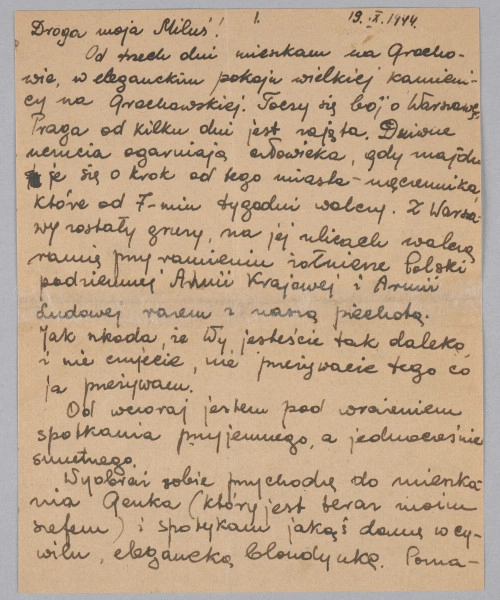 1. 19.IX.1944.
Droga moja Miluś!
Od trzech dni mieszkam na Grocho-
wie, w eleganckim pokoju wielkiej kamieni-
cy na Grochowskiej. Toczy się bój o Warszawę,
Praga od kilku dni jest zajęta. Dziwne
uczucia ogarniają człowieka, gdy znajdu
je się o krok od tego miasta-męczennika
które od 7-miu tygodni walczy. Z Warsza-
wy zostały gruzy, na jej ulicach walczą
ramię przy ramieniu żołnierze Polski
podziemnej Armii Krajowej i Armii
Ludowej razem z naszą piechotą.
Jak szkoda, że Wy jesteście tak daleko
i nie czujecie, nie przeżywacie tego co
ja przeżywam.
Od wczoraj jestem pod wrażeniem
spotkania przyjemnego, a jednocześnie
smutnego.
Wyobraź sobie przychodzę do mieszka-
nia Genka (który jest teraz moim
szefem) i spotykam jakąś damę w cy-
wilu, elegancką blondynkę. Pozna-